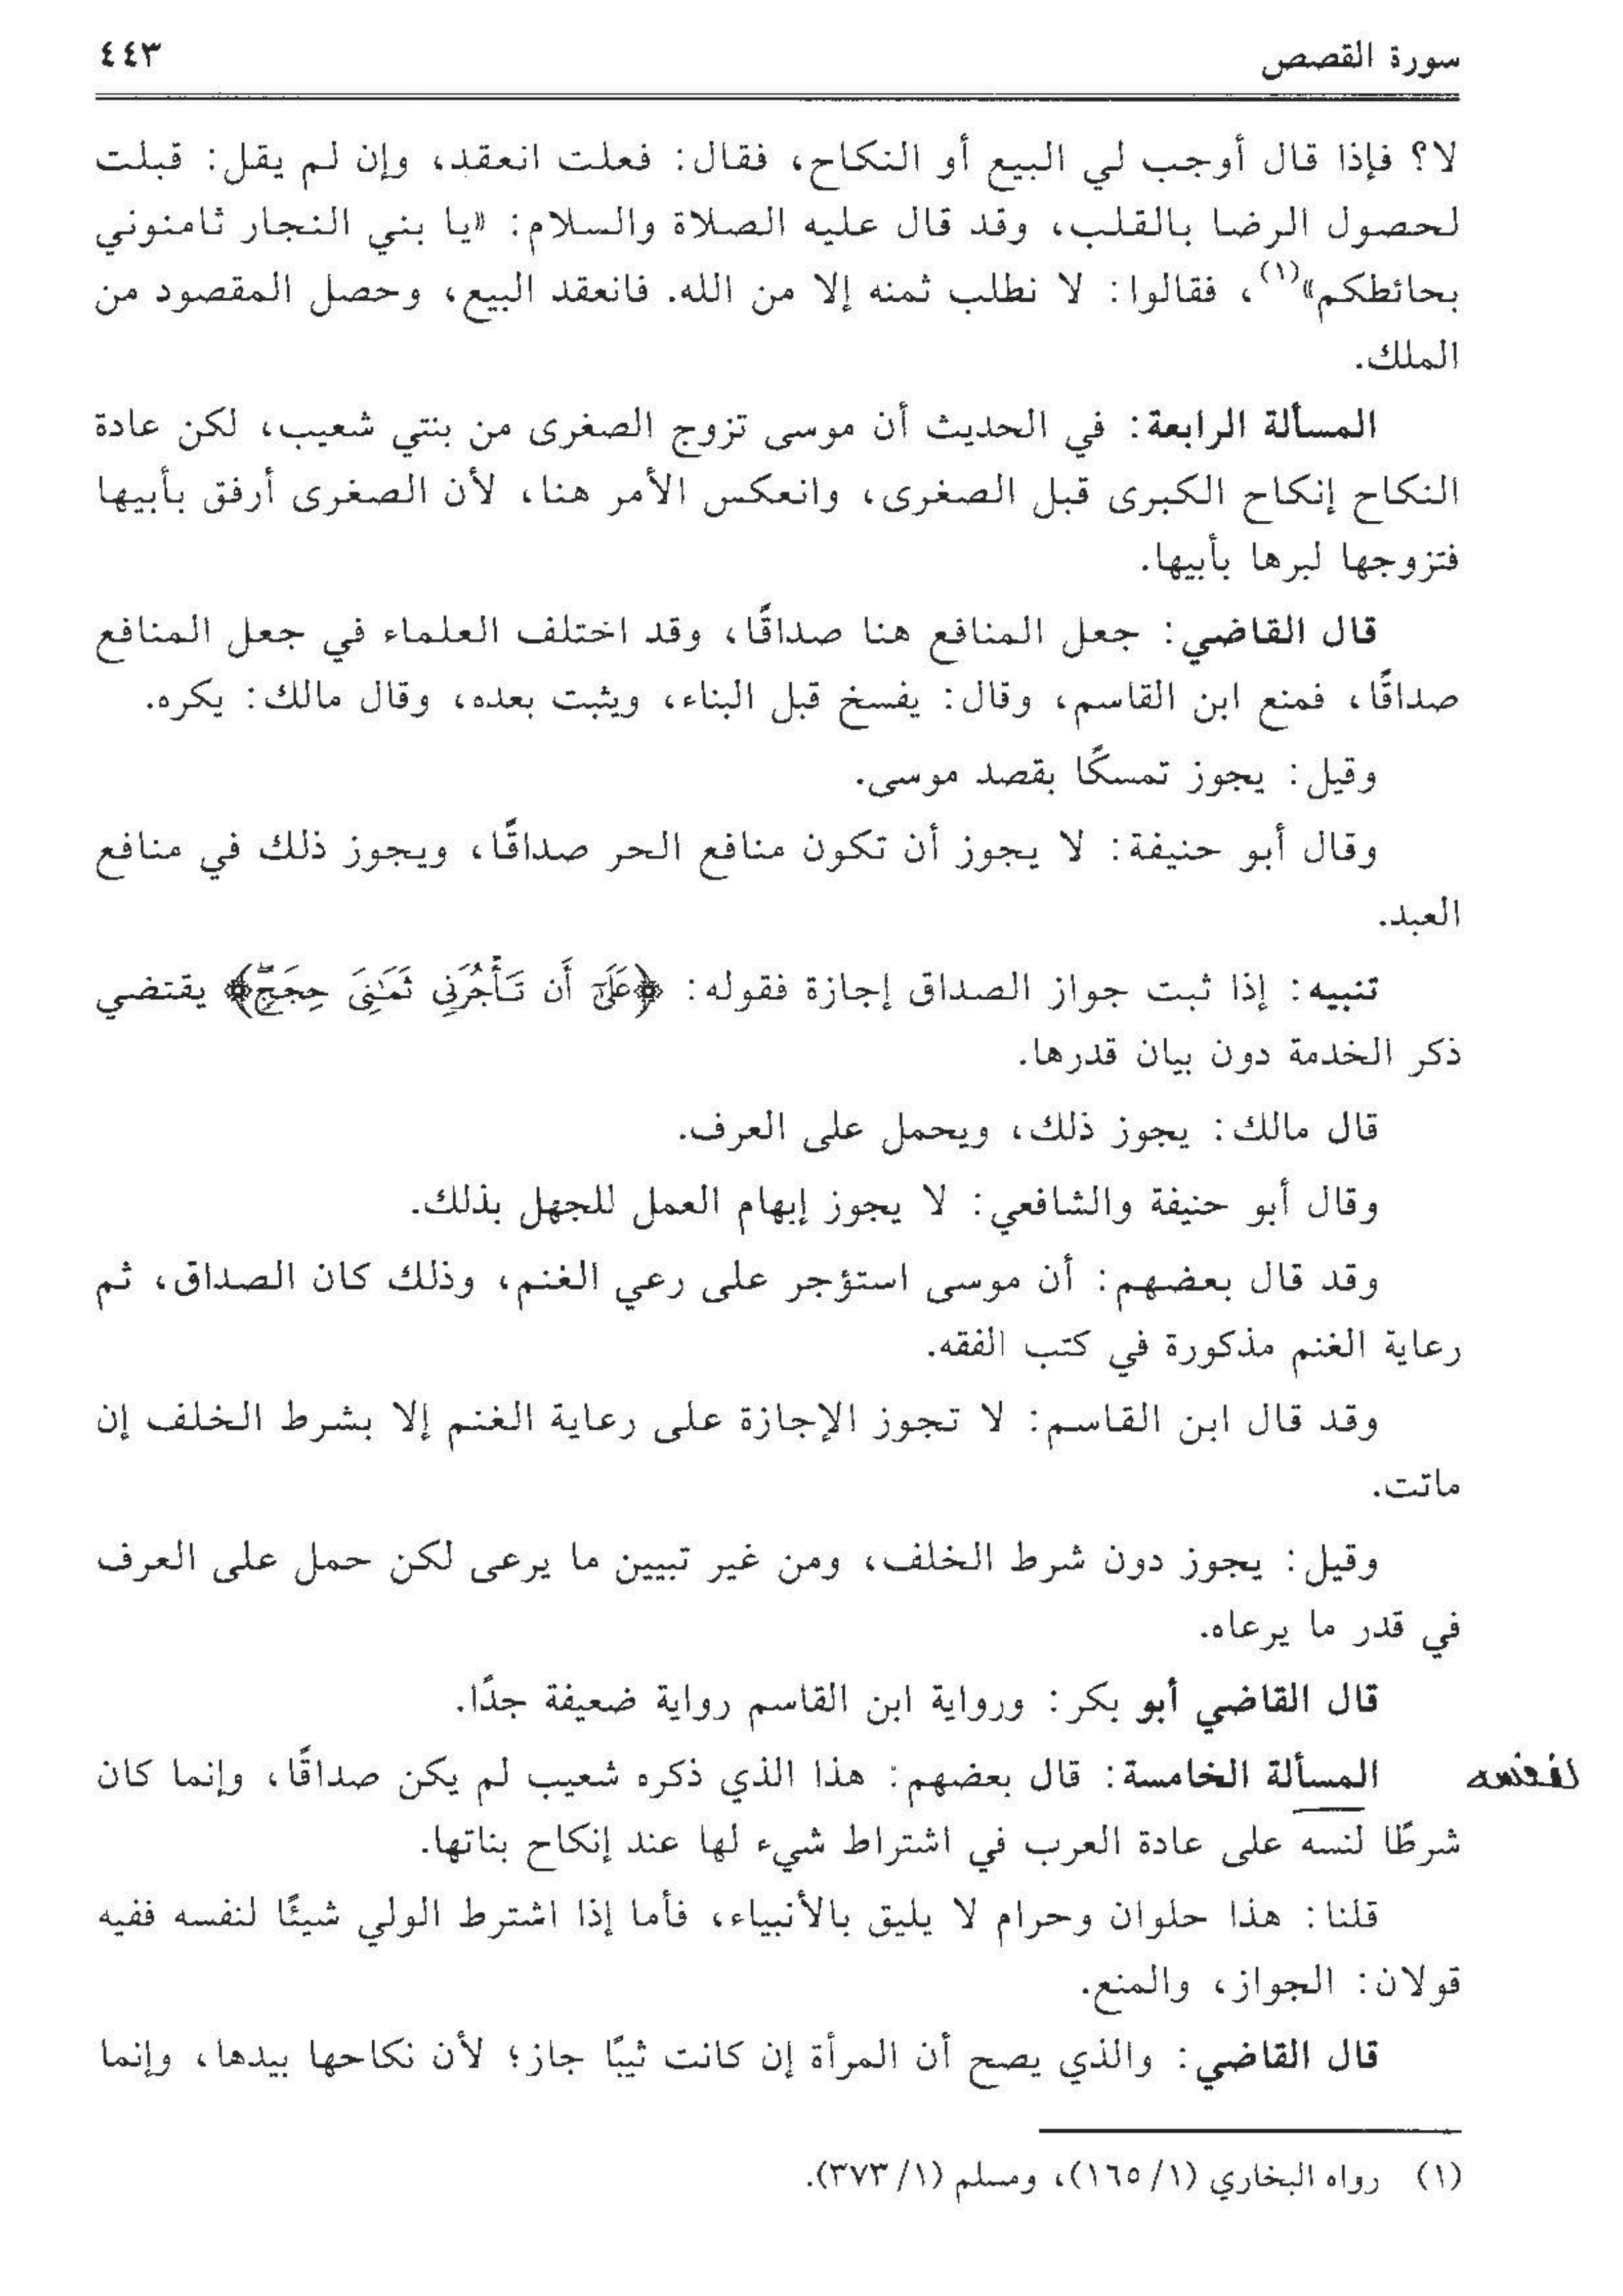 سورة القصص ٤٤٣
لا؟ فإذا قال أوجب لي البيع أو النكاح، فقال: فعلت انعقد، وإن لم يقل: قبلت
لحصول الرضا بالقلب، وقد قال عليه الصلاة والسلام: «يا بني النجار ثامنوني
بحائطكم»(١)، فقالوا: لا نطلب ثمنه إلا من الله. فانعقد البيع، وحصل المقصود من
الملك.
المسألة الرابعة: في الحديث أن موسى تزوج الصغرى من بنتي شعيب، لكن عادة
النكاح إنكاح الكبرى قبل الصغرى، وانعكس الأمر هنا، لأن الصغرى أرفق بأبيها
فتزوجها لبرها بأبيها.
قال القاضي: جعل المنافع هنا صداقًا، وقد اختلف العلماء في جعل المنافع
صداقًا، فمنع ابن القاسم، وقال: يفسخ قبل البناء، ويثبت بعده، وقال مالك: يكره.
وقيل: يجوز تمسكًا بقصد موسى.
وقال أبو حنيفة: لا يجوز أن تكون منافع الحر صداقًا، ويجوز ذلك في منافع
العبد.
تنبيه: إذا ثبت جواز الصداق إجازة فقوله: ﴿عَلَىٰٓ أَن تَأْجُرَنِى ثَمَٰنِىَ حِجَجٍۖ﴾ يقتضي
ذكر الخدمة دون بيان قدرها.
قال مالك: يجوز ذلك، ويحمل على العرف.
وقال أبو حنيفة والشافعي: لا يجوز إبهام العمل للجهل بذلك.
وقد قال بعضهم: أن موسى استؤجر على رعي الغنم، وذلك كان الصداق، ثم
رعاية الغنم مذكورة في كتب الفقه.
وقد قال ابن القاسم: لا تجوز الإجازة على رعاية الغنم إلا بشرط الخلف إن
ماتت.
وقيل: يجوز دون شرط الخلف، ومن غير تبيين ما يرعى لكن حمل على العرف
في قدر ما يرعاه.
قال القاضي أبو بكر: ورواية ابن القاسم رواية ضعيفة جدًا.
المسألة الخامسة: قال بعضهم: هذا الذي ذكره شعيب لم يكن صداقًا، وإنما كان
شرطًا لنسه على عادة العرب في اشتراط شيء لها عند إنكاح بناتها.
قلنا: هذا حلوان وحرام لا يليق بالأنبياء، فأما إذا اشترط الولي شيئًا لنفسه ففيه
قولان: الجواز، والمنع.
قال القاضي: والذي يصح أن المرأة إن كانت ثيبًا جاز؛ لأن نكاحها بيدها، وإنما
(١) رواه البخاري (١/ ١٦٥)، ومسلم (١/ ٣٧٣).